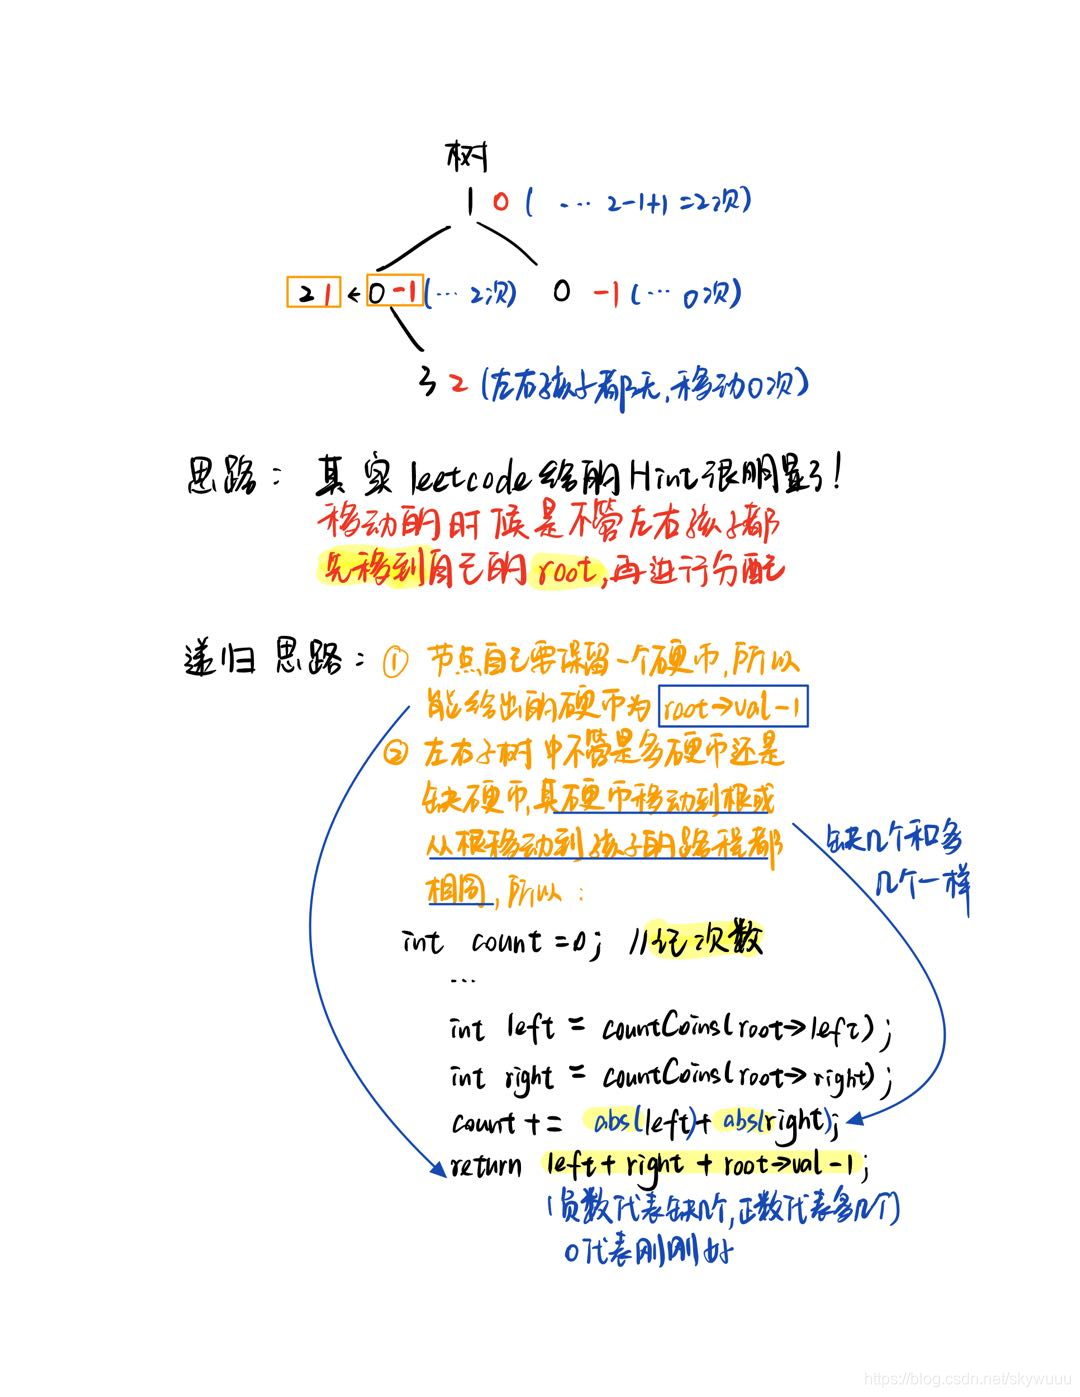 树
1 0 ( … 2-1+1=2次)
2 1 ← 0 -1 (… 2次) 0 -1 (… 0次)
3 2 (左右孩子都无,移动0次)
思路: 其实leetcode给的Hint很明显了!
移动的时候是不管左右孩子都
先移到自己的root,再进行分配
递归思路: ① 节点自己要保留一个硬币,所以
能给出的硬币为 root→val-1
② 左右子树中不管是多硬币还是
缺硬币,其硬币移动到根或
从根移动到孩子的路程都
相同,所以:
缺几个和多
几个一样
int count=0; //记次数
…
int left = countCoins(root→left);
int right = countCoins(root→right);
count += abs(left)+abs(right);
return left+right+root→val-1;
(负数代表缺几个,正数代表多几个)
0代表刚刚好
https://blog.csdn.net/skywuuu